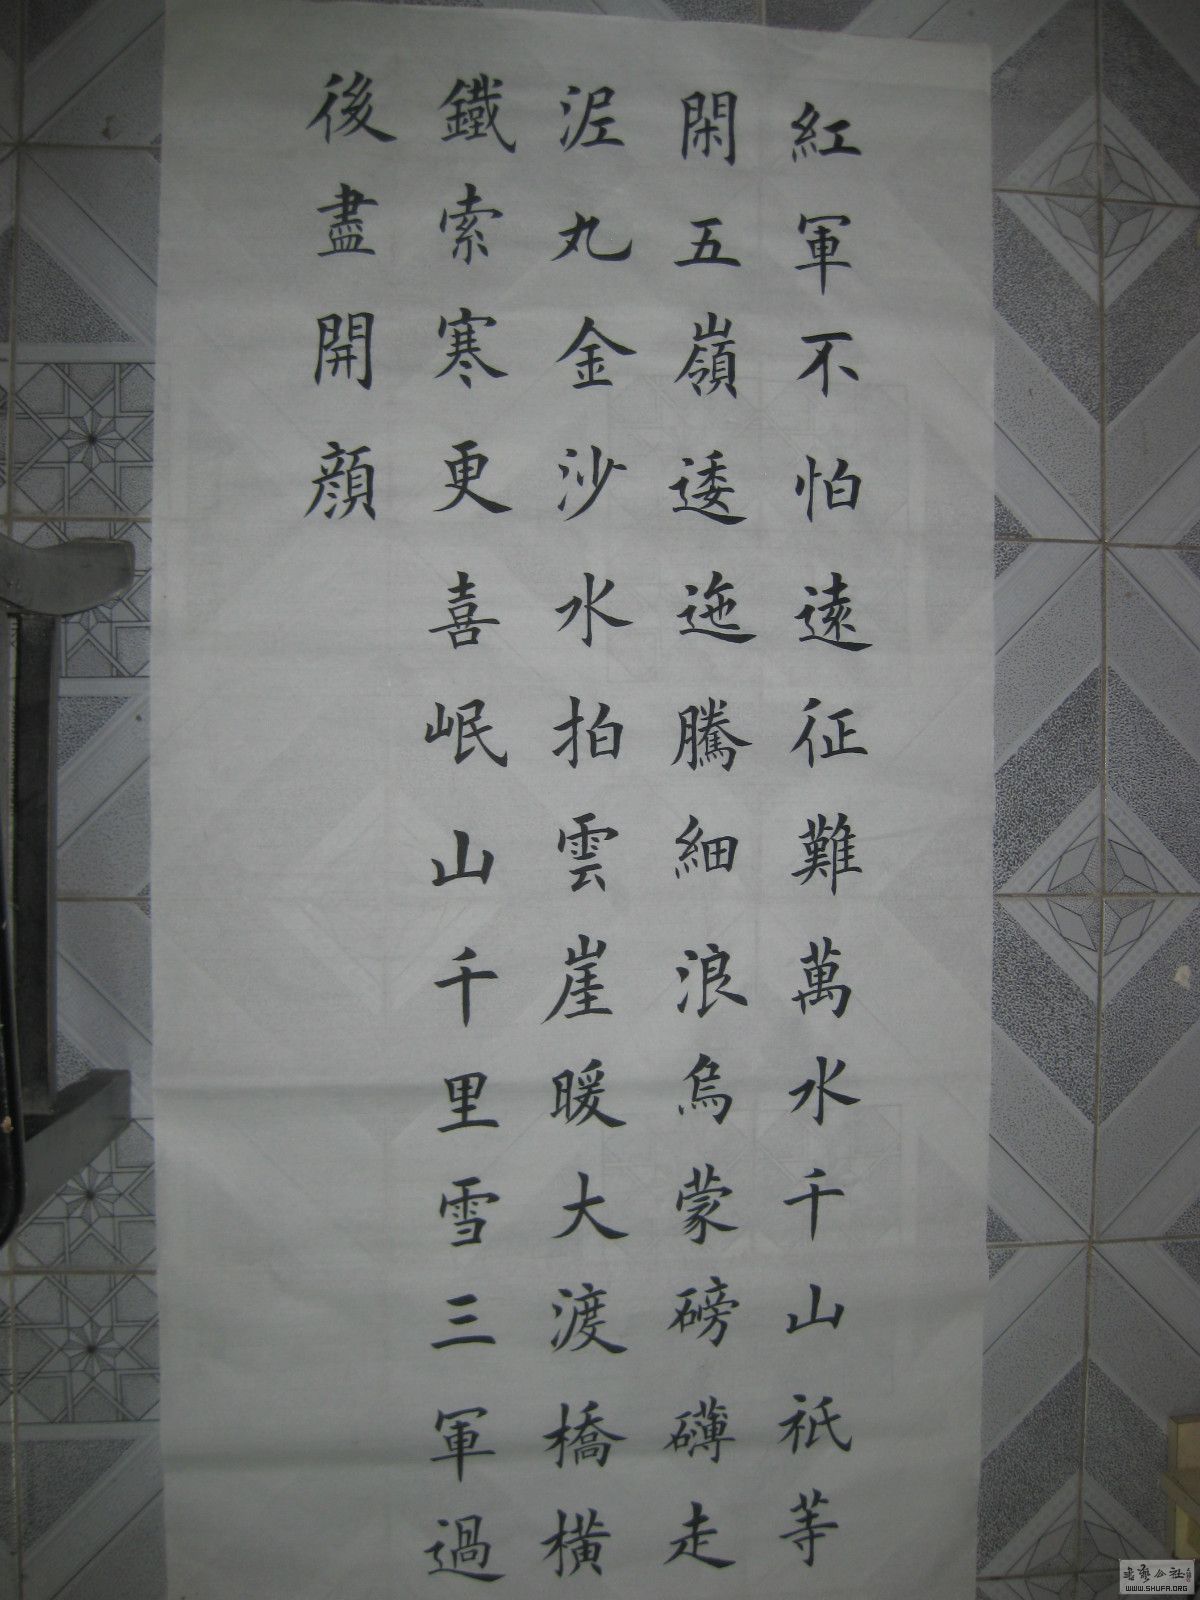 紅軍不怕遠征難萬水千山祇等
閑五嶺逶迤騰細浪烏蒙磅礴走
泥丸金沙水拍雲崖暖大渡橋橫
鐵索寒更喜岷山千里雪三軍過
後盡開顏
WWW.SHUFA.ORG